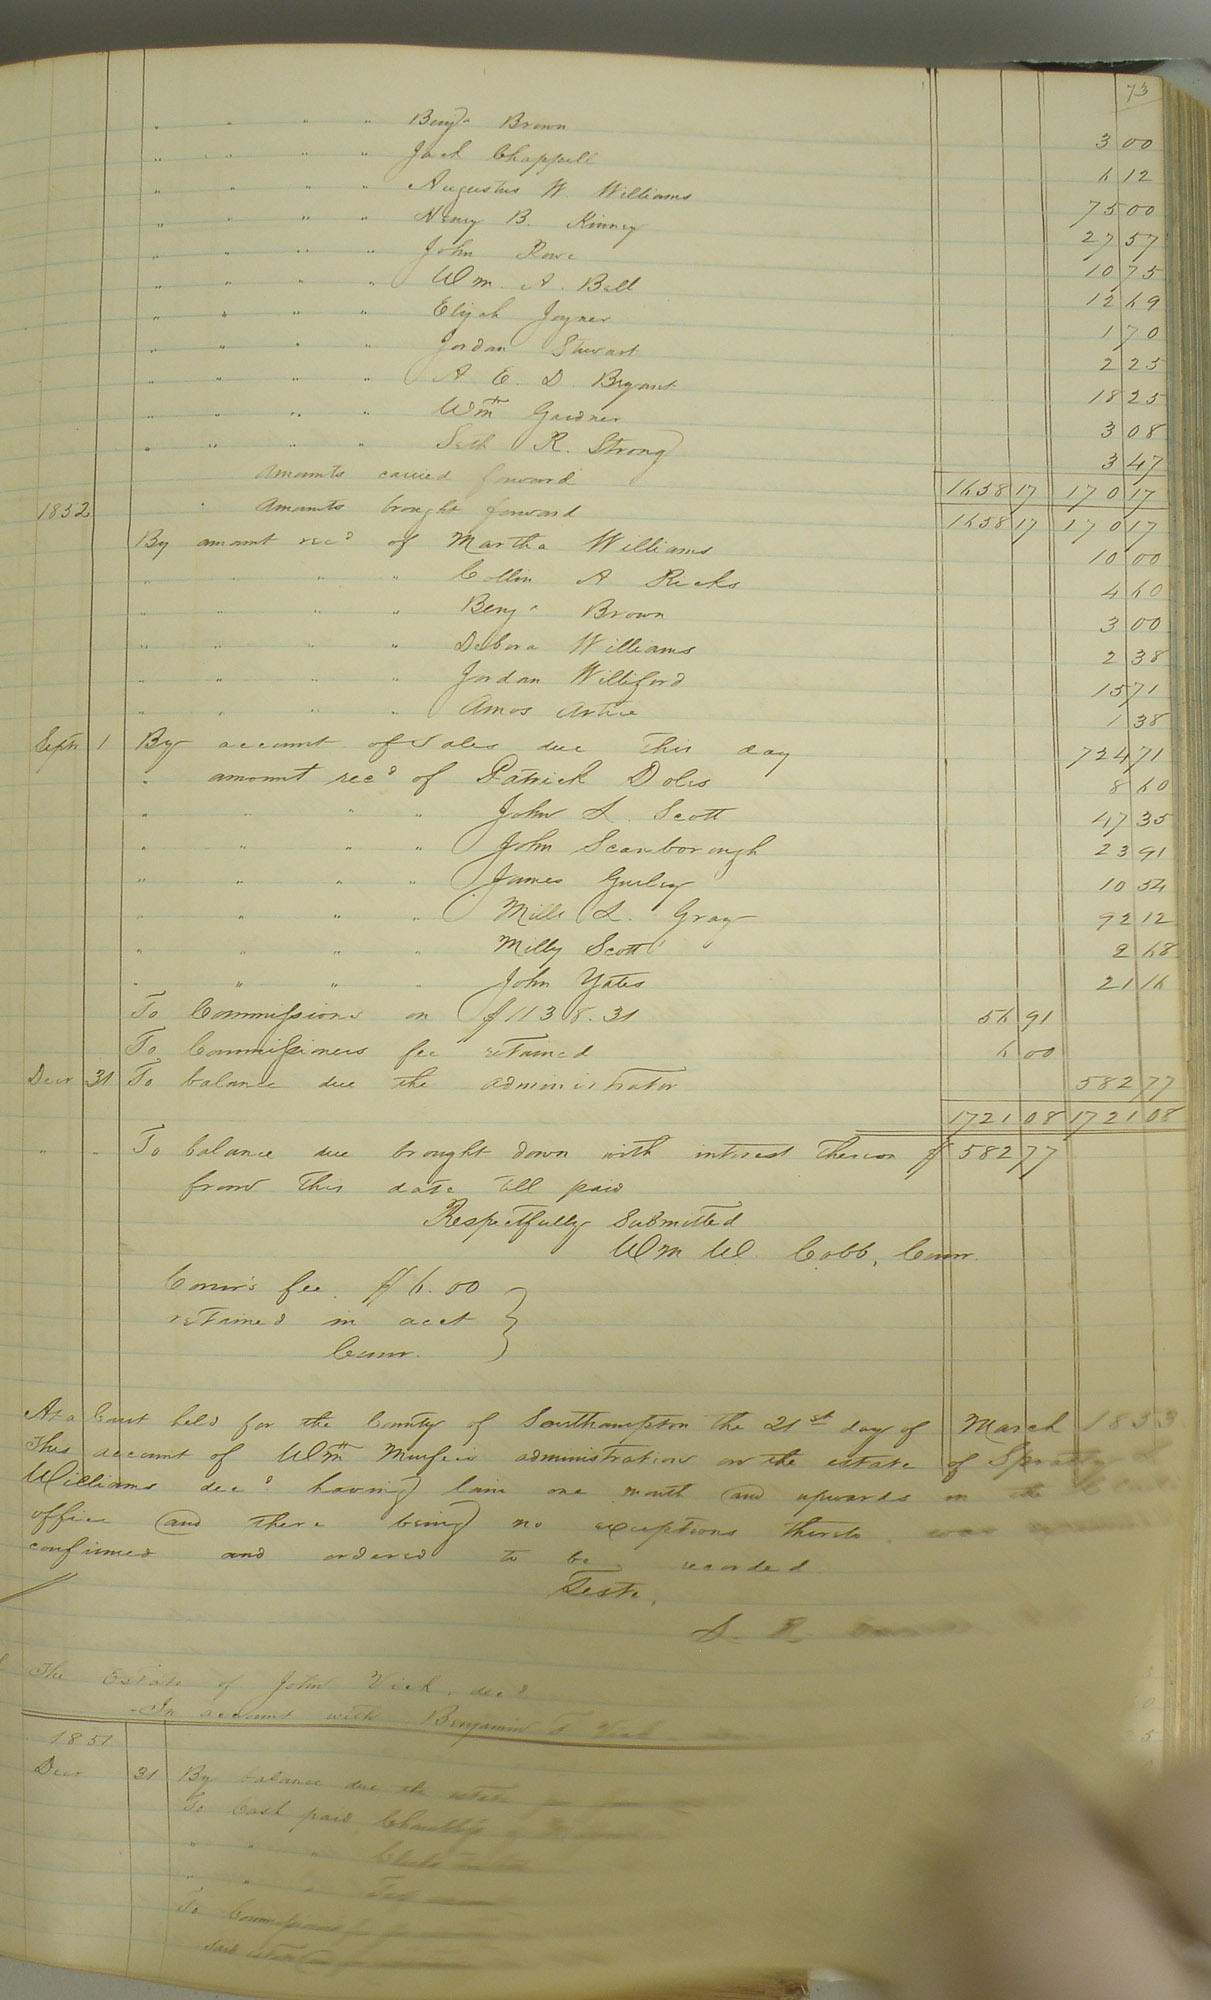 73
" " " " Benja Brown 3 00
" " " " Jack Chappell 6 12
" " " " Augustus W. Williams 75 00
" " " " Henry B. Kinney 27 57
" " " " John Rowe 10 75
" " " " Wm. A. Ball 12 69
" " " " Elijah Joyner 1 70
" " " " Jordan Stewart 2 25
" " " " A. E. D. Bryant 18 25
" " " " Wm Gardner 3 08
" " " " Seth R. Strong 3 47
Amounts carried forward 1658 17 170 17
1852 Amounts brought forward 1658 17 170 17
By amount recd of Martha Williams 10 00
" " " " Collin A Ricks 4 60
" " " " Benja Brown 3 00
" " " " Debora Williams 2 38
" " " " Jordan Williford 15 71
" " " " Amos Artie 1 38
Septr 1 By account of Sales due this day 724 71
" amount recd of Patrick Doles 8 60
" " " " John L. Scott 47 35
" " " " John Scarborough 23 91
" " " " James Gurley 10 54
" " " " Mills L. Gray 92 12
" " " " Milly Scott 2 68
" " " " John Yates 21 16
To Commissions on $1138.31 56 91
To Commissioners fee retained 6 00
Decr 31 To balance due the administrator 582 77
1721 08 1721 08
" " To balance due brought down with interest thereon $ 582 77
from this date till paid
Respectfully Submitted
Wm W. Cobb, Comr.
Comr's fee $6.00
retained in acct
Comr.
At a Court held for the County of Southampton the 21st day of March 1853
This account of Wm Murfees administration on the estate of
Williams decd having lain one month and upwards in the
office and there being no exceptions thereto was
confirmed and ordered to be recorded
Teste,
The Estate of John Vick decd
In account with Benjamin T Vick
1851
Decr 31 By balance due the estate
To Cash paid
" " "
" " " Tax
To Commissioners